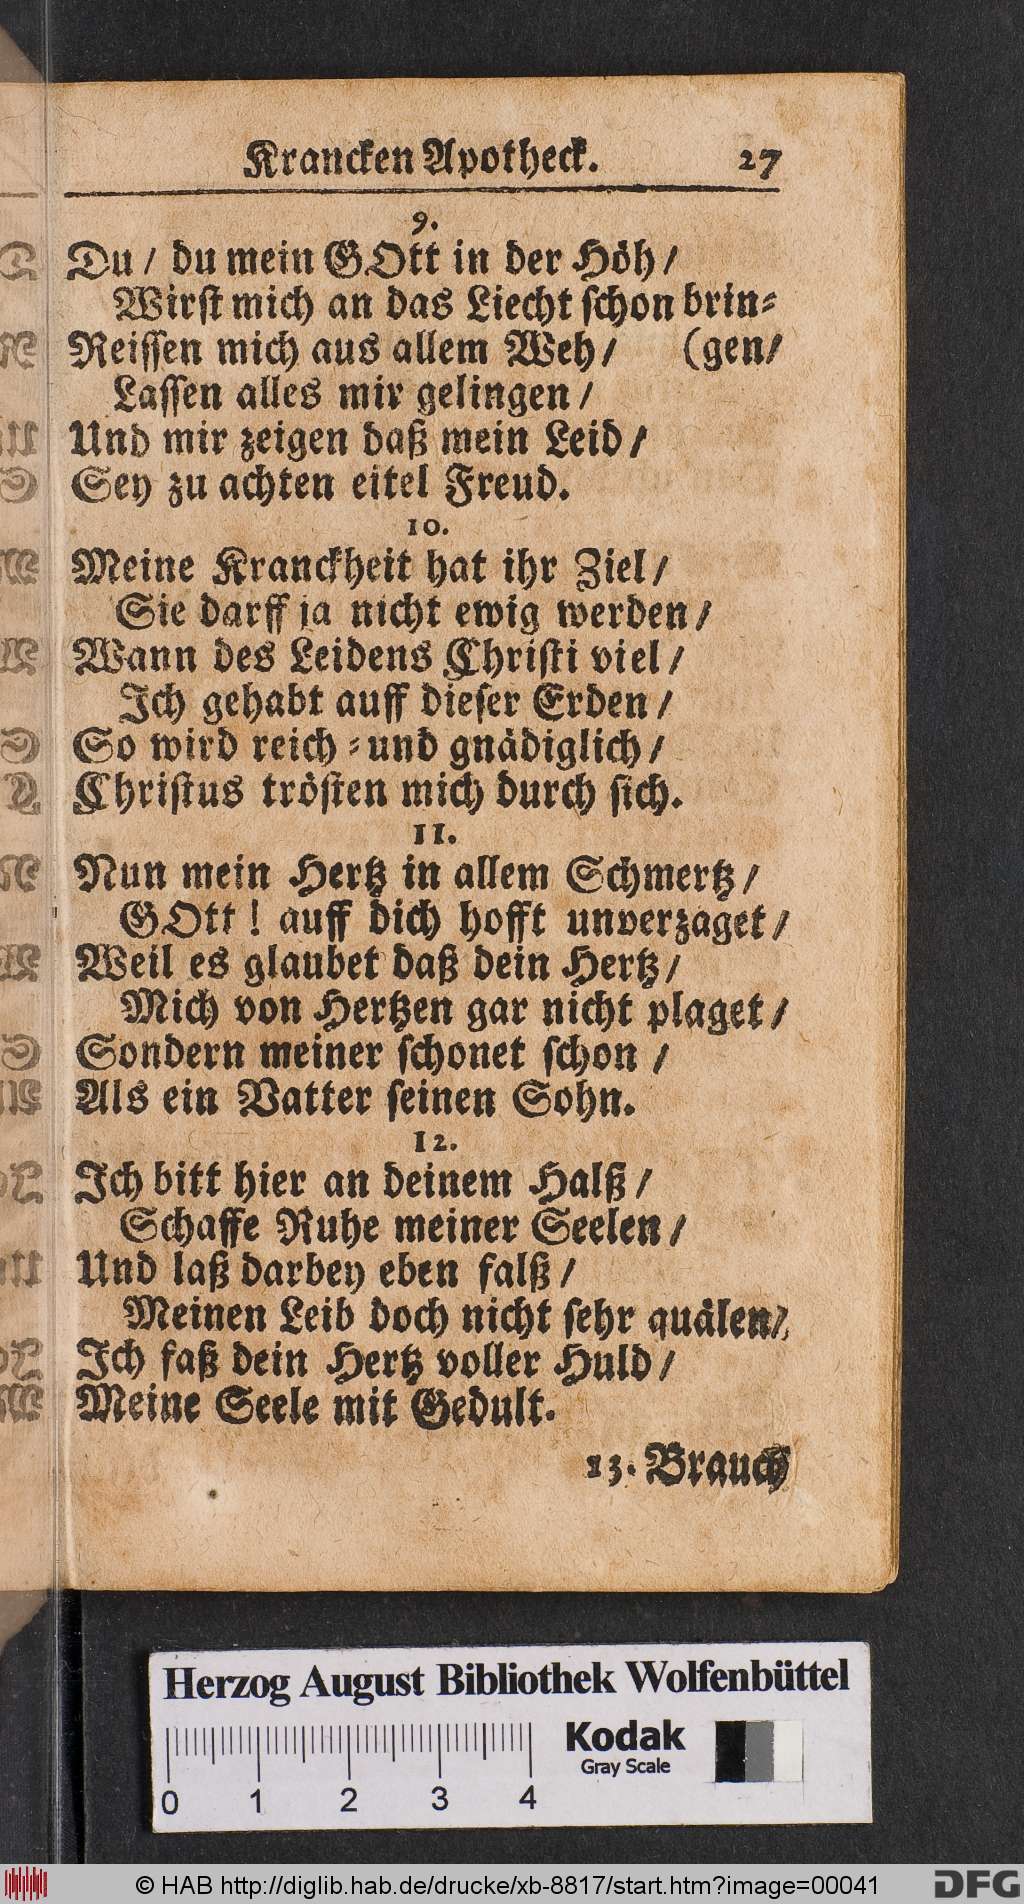 Krancken Apotheck. 27
9.
Du / du mein GOtt in der Höh /
Wirst mich an das Liecht schon brin-
Reissen mich aus allem Weh / (gen /
Lassen alles mir gelingen /
Und mir zeigen daß mein Leid /
Sey zu achten eitel Freud.
10.
Meine Kranckheit hat ihr Ziel /
Sie darff ja nicht ewig werden /
Wann des Leidens Christi viel /
Ich gehabt auff dieser Erden /
So wird reich - und gnädiglich /
Christus trösten mich durch sich.
11.
Nun mein Hertz in allem Schmertz /
GOtt ! auff dich hofft unverzaget /
Weil es glaubet daß dein Hertz /
Mich von Hertzen gar nicht plaget /
Sondern meiner schonet schon /
Als ein Vatter seinen Sohn.
12.
Ich bitt hier an deinem Halß /
Schaffe Ruhe meiner Seelen /
Und laß darbey eben falß /
Meinen Leib doch nicht sehr quälen /
Ich faß dein Hertz voller Huld /
Meine Seele mit Gedult.
13. Brauch
Herzog August Bibliothek Wolfenbüttel
Kodak
Gray Scale
0 1 2 3 4
© HAB http://diglib.hab.de/drucke/xb-8817/start.htm?image=00041
DFG